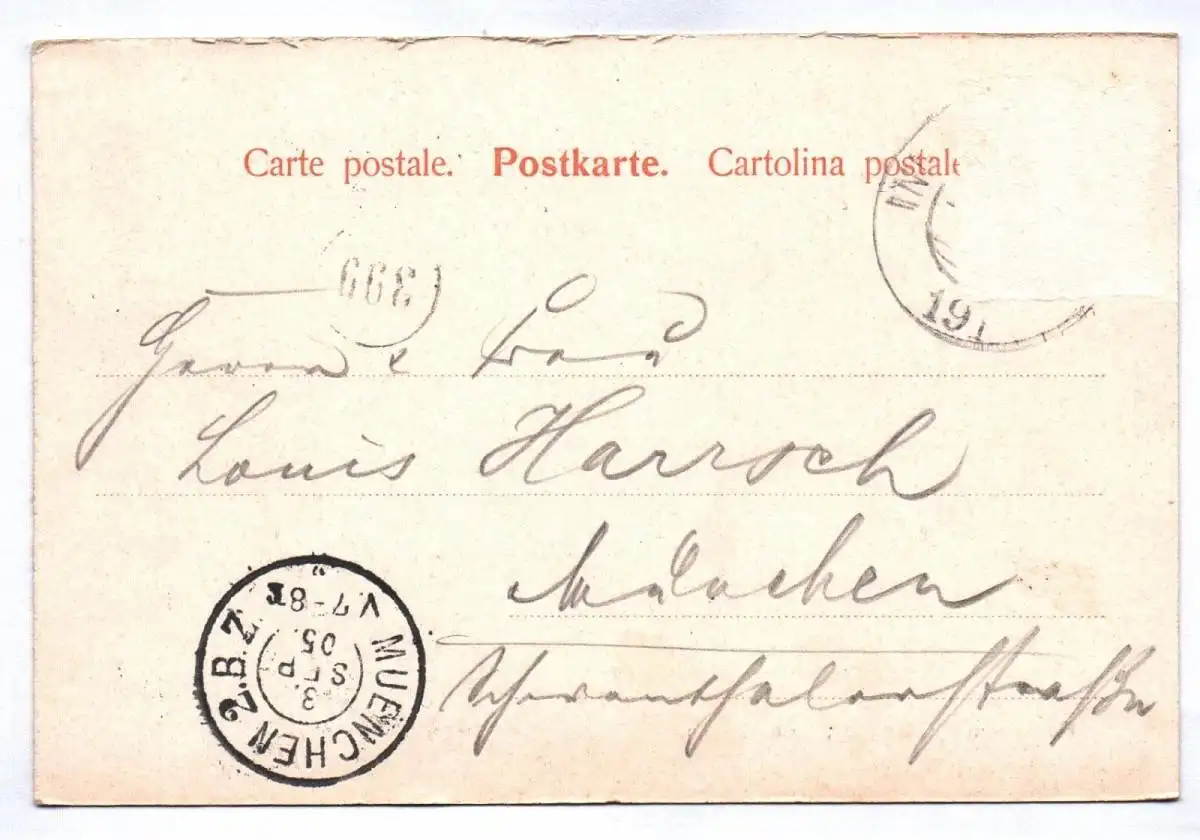 Carte postale. Postkarte. Cartolina postale
399
19
Herrn & Frau
Louis Harrsch
München
Schwanthalerstraße
MUENCHEN 2.B.Z.
3.
SEP.
05.
V.7-8